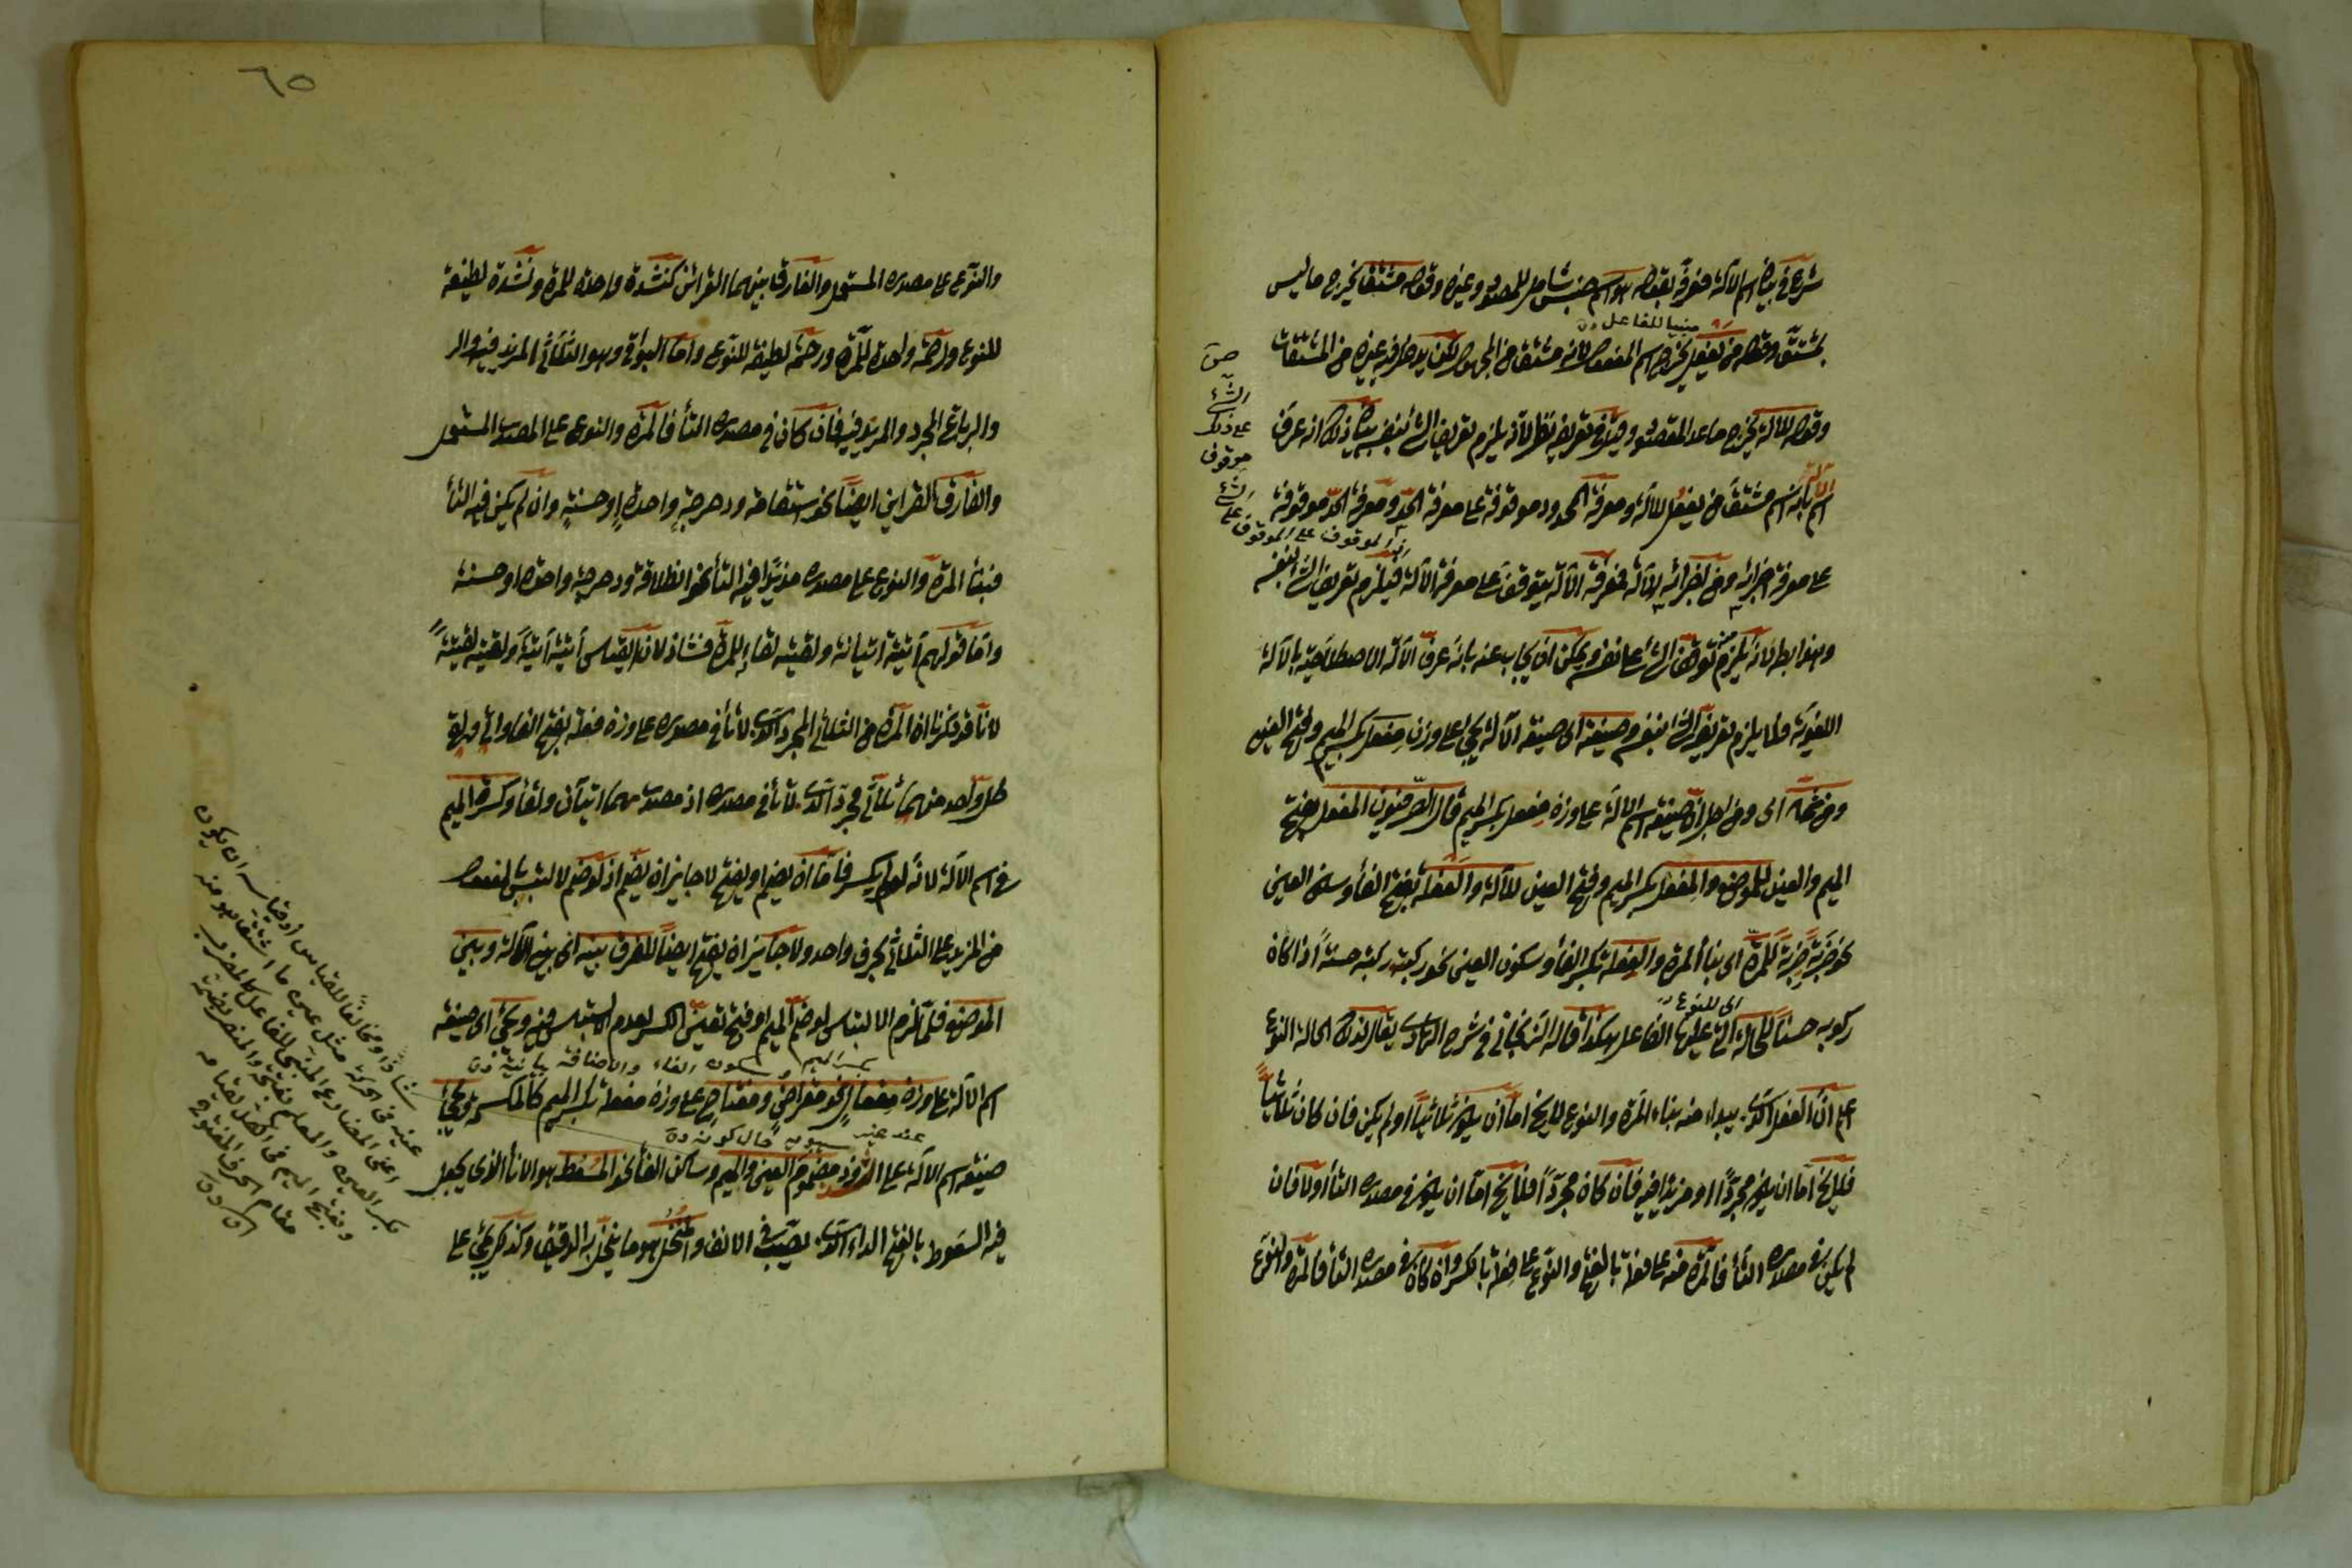 شرع في بيان اسم الآلة فعرفه بقوله هو اسم جنس شامل للمحدود وغيره وقوله مشتق يخرج ما ليس
مبنيا للفاعل
بمشتق وقوله من يفعل يخرج اسم المفعول لانه مشتق من المجهول لكن يدخل فيه غيره من المشتقات
وقوله للآلة يخرج ما عدا المقصود وفي تعريفه نظر لانه يلزم تعريف الشئ بنفسه بيان ذلك انه عرف
اسم الآلة بانه اسم مشتق من يفعل للآلة ومعرفة المحدود موقوفة على معرفة الحد ومعرفة الحد موقوفة
على معرفة اجزائه ومن اجزائه الآلة فمعرفة الآلة يتوقف على معرفة الآلة فيلزم تعريف الشئ بنفسه
الموقوف على الموقوف
على
الشئ
موقوف
على ذلك
الشئ
وهو باطل لانه يلزم توقف الشئ على نفسه ويمكن ان يجاب عنه بانه عرف الآلة الاصطلاحية بالآلة
اللغوية فلا يلزم تعريف الشئ بنفسه وصيغته اى صيغة الآلة يجئ على وزن مفعل بكسر الميم وفتح العين
ومن ثمه اى ومن اجل ان صيغة اسم الآلة على وزن مفعل بكسر الميم قال الصرفيون المفعل بفتح
الميم والعين للموضع والمفعل بكسر الميم وفتح العين للآلة والفعلة بفتح الفاء وسكون العين
نحو ضربت ضربة للمرة اى بناء المرة والفعلة بكسر الفاء وسكون العين نحو ركبته ركبة حسنة اذا كان
اى للنوع
ركوبه حسنا للحالة التى عليها الفاعل هكذا قاله الزنجاني في شرح الهادى يقال لذلك الحالة النوع
اعلم ان الفعل الذى يبدأ منه بناء المرة والنوع لا يخ اما ان يكون ثلاثيا او لم يكن فان كان ثلاثيا
فلا يخ اما ان يكون مجردا او مزيدا فيه فان كان مجردا فلا يخ اما ان يكون في مصدره التاء اولا فان
لم يكن في مصدره التاء فالمرة منه على فعلة بالفتح والنوع على فعلة بالكسر وان كان في مصدره التاء فالمرة والنوع
٦٥
والنوع على مصدره المستعمل والفارق بينهما القرائن كنشدة واحدة للمرة ونشدة لطيفة
للنوع ورحمة واحدة للمرة ورحمة لطيفة للنوع واما البواقى وهو الثلاثى المزيد فيه والر
والرباعى المجرد والمزيد فيه فان كان في مصدره التاء فالمرة والنوع على المصدر المستعمل
والفارق القراين ايضا نحو استقامة ودحرجة واحدة او حسنة وان لم يكن فيه التاء
فبناء المرة والنوع على مصدره مزيدا فيه التاء نحو انطلاقة ودحرجة واحدة او حسنة
واما قولهم اتيته اتيانة ولقيته لقاءة للمرة فشاذ لان القياس اتيته اتية ولقيته لقية
لانا قد ذكرنا ان المرة من الثلاثى المجرد الذى لا تاء في مصدره على وزن فعلة بفتح الفاء واتى ولقى
كل واحد منهما ثلاثى مجرد الذى لا تاء في مصدره اذ مصدرهما اتيان ولقاء وكسرة الميم
في اسم الآلة لانه لو لم يكسر فاما ان يضم او يفتح لا جايز ان يضم اذ لو ضم لالتبس بالمفعول
من المزيد على الثلاثى بحرف واحد ولا جايز ان يفتح ايضا للفرق بينه اى بين الآلة وبين
الموضع فلما لزم الالتباس لو ضم الميم او فتح تعين الكسر لعدم الالتباس فيه ويجئ اى صيغة
بكسر الميم وسكون الفاء والاضافة بيانية
اسم الآلة على وزن مفعال نحو مقراض ومفتاح على وزن مفعلة بكسر الميم كالمكسحة ويجئ
عند غير سيبويه حال كونه
صيغة اسم الآلة على الشذوذ مضموم العين والميم وساكن الفاء نحو المسعط هو الاناء الذى يجعل
فيه السعوط بالفتح الداء الذى يصب في الانف والمنخل هو ما ينخل به الدقيق وكذكر يجئ على
شاذا ومخالفا للقياس اذ قياسه ان يكون
عينه في الحركة مثل عين ما اشتق هو منه
اعنى المضارع المبنى للفاعل كالمضرب
بكسر العين والمعلم بفتحه والمنصر بضمه
وبفتح الميم في الكل لقيامه
مقام الحرف المفتوح